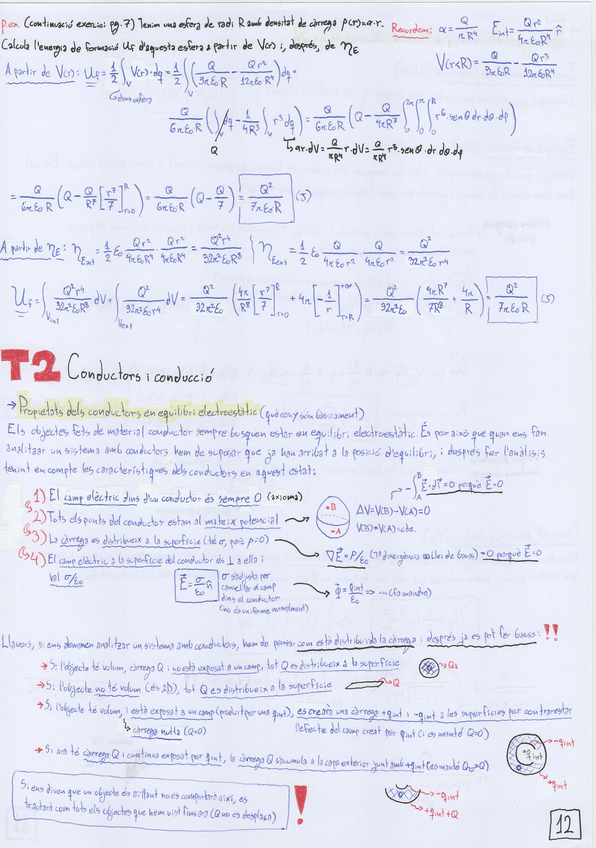 p.ex. (continuació exercici pg. 7) Tenim una esfera de radi R amb densitat de càrrega ρ(r)=α·r. Recordem: α = Q/πR⁴ E_int = Qr²/4πε₀R⁴ r̂
Calcula l'energia de formació Uf d'aquesta esfera a partir de V(r) i, després, de η_E V(r<R) = Q/3πε₀R - Qr³/12πε₀R⁴
A partir de V(r): Uf = 1/2 ∫_V V(r)·dq = 1/2 ∫_V (Q/3πε₀R - Qr³/12πε₀R⁴) dq =
Q/6πε₀R (∫dq - 1/4R³ ∫_V r³dq) = Q/6πε₀R (Q - Q/4πR⁷ ∫₀^2π ∫₀^π ∫₀^R r⁶·senθ dr dθ·dφ)
Q
αr·dV = Q/πR⁴ r·dV = Q/πR⁴ r³·senθ·dr dθ·dφ
= Q/6πε₀R (Q - Q/R⁷ [r⁷/7]_r=0^R) = Q/6πε₀R (Q - Q/7) = Q²/7πε₀R (J)
A partir de η_E: η_Eint = 1/2 ε₀ Qr²/4πε₀R⁴ · Qr²/4πε₀R⁴ = Q²r⁴/32π²ε₀R⁸ } η_Eext = 1/2 ε₀ Q/4πε₀r² · Q/4πε₀r² = Q²/32π²ε₀r⁴
Uf = ∫_Vint Q²r⁴/32π²ε₀R⁸ dV + ∫_Vext Q²/32π²ε₀r⁴ dV = Q²/32π²ε₀ (4π/R⁸ [r⁷/7]_r=0^R + 4π[-1/r]_r=R^+∞) = Q²/32π²ε₀ (4πR⁷/7R⁸ + 4π/R) = Q²/7πε₀R (J)
T2 Conductors i conducció
→ Propietats dels conductors en equilibri electroestàtic (què con y són bàsicament)
Els objectes fets de material conductor sempre busquen estar en equilibri electroestàtic. És per això que quan ens fan
analitzar un sistema amb conductors hem de suposar que ja han arribat a la posició d'equilibri, i després fer l'anàlisis
tenint en compte les característiques dels conductors en aquest estat:
1) El camp elèctric dins d'un conductor és sempre 0 (axioma)
2) Tots els punts del conductor estan al mateix potencial
3) La càrrega es distribueix a la superfície (té σ, però ρ=0)
4) El camp elèctric a la superfície del conductor és ⊥ a ella i
val σ/ε₀
B
A
-∫_A^B E·dl = 0 perquè E=0
ΔV=V(B)-V(A)=0
V(B)=V(A)=cte.
∇E = ρ/ε₀ = 0 perquè E=0
E = σ/ε₀ n̂
σ s'adjusta per
cancel·lar el camp
dins el conductor
(no és uniforme normalment)
Φ = qint/ε₀ ⇒
Llavors, si ens demanen analitzar un sistema amb conductors, hem de pensar com està distribuïda la càrrega i després ja es pot fer Gauss: !!
→ Si l'objecte té volum, càrrega Q i no està exposat a un camp, tot Q es distribueix a la superfície
→ Si l'objecte no té volum (és 2D), tot Q es distribueix a la superfície Q
→ Si l'objecte té volum, i està exposat a un camp (produït per una qint), es crearà una càrrega +qint i -qint a les superfícies per contrarestar
càrrega nul·la (Q=0) l'efecte del camp creat per qint (i es manté Q=0)
→ Si ara té càrrega Q i continua exposat per qint, la càrrega Q s'acumula a la capa exterior junt amb +qint
-qint
qint
+qint
-qint
+qint+Q
Si ens diuen que un objecte és aïllant no es comportarà així, es
tractarà com tots els objectes que hem vist fins ara (Q no es desplaça) !
12